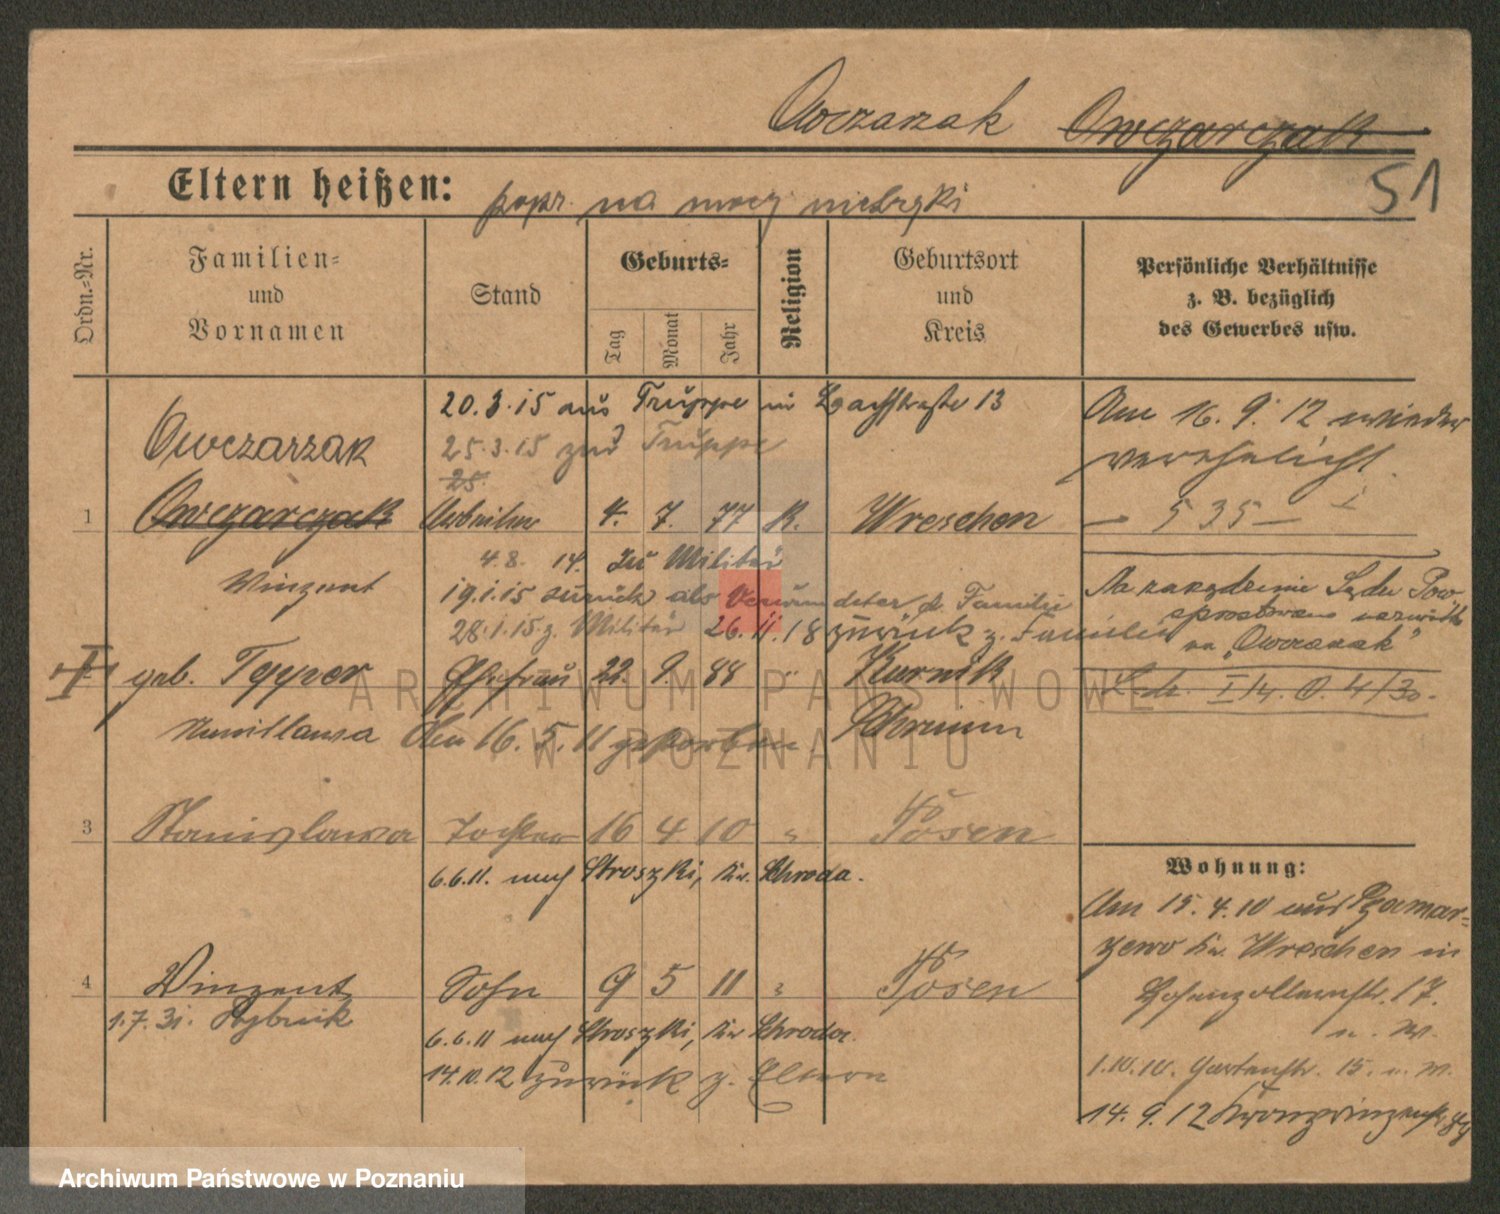 Owczarzak Owczarczak
Eltern heißen: popr. na mocy metryki 51
Ordn.=Nr.
Familien=
und
Vornamen
Stand
Geburts=
Tag
Monat
Jahr
Religion
Geburtsort
und
Kreis
Persönliche Verhältnisse
z. B. bezüglich
des Gewerbes usw.
20.3.15 aus Truppe in 13
Am 16.9.12 wieder
verehelicht.
Owczarzak
25.3.15 zur Truppe
25.
1 Owczarczak Arbeiter 4. 7. 77 K. Wreschen
— 535 —
Winzent
4.8. 14. zu Militär
19.1.15 zurück als Verwundeter z. Familie
28.1.15 z. Militär 26.11.18 zurück z. Familie
Na zarządzenie Sądu Pow.
sprostowano nazwisko
na „Owczarzak"
I geb. Tepper Ehefrau 22. 9. 88 " Kurnik
Am 16.5.11 gestorben Schrimm
3 Stanislawa Tochter 16 4 10 " Posen
6.6.11. nach Stroszki, Kr. Schroda.
4 Winzent Sohn 9 5 11 " Posen
1.7.31.
6.6.11 nach Stroszki, Kr. Schroda.
14.10.12 zurück z. Eltern
Wohnung:
Am 15.4.10 aus
Kr. Wreschen in
Hohenzollernstr. 17.
u. W.
1.10.10. Gartenstr. 15. u. W.
14.9.12 Kronprinzenstr. 89
ARCHIWUM PAŃSTWOWE
W POZNANIU
Archiwum Państwowe w Poznaniu